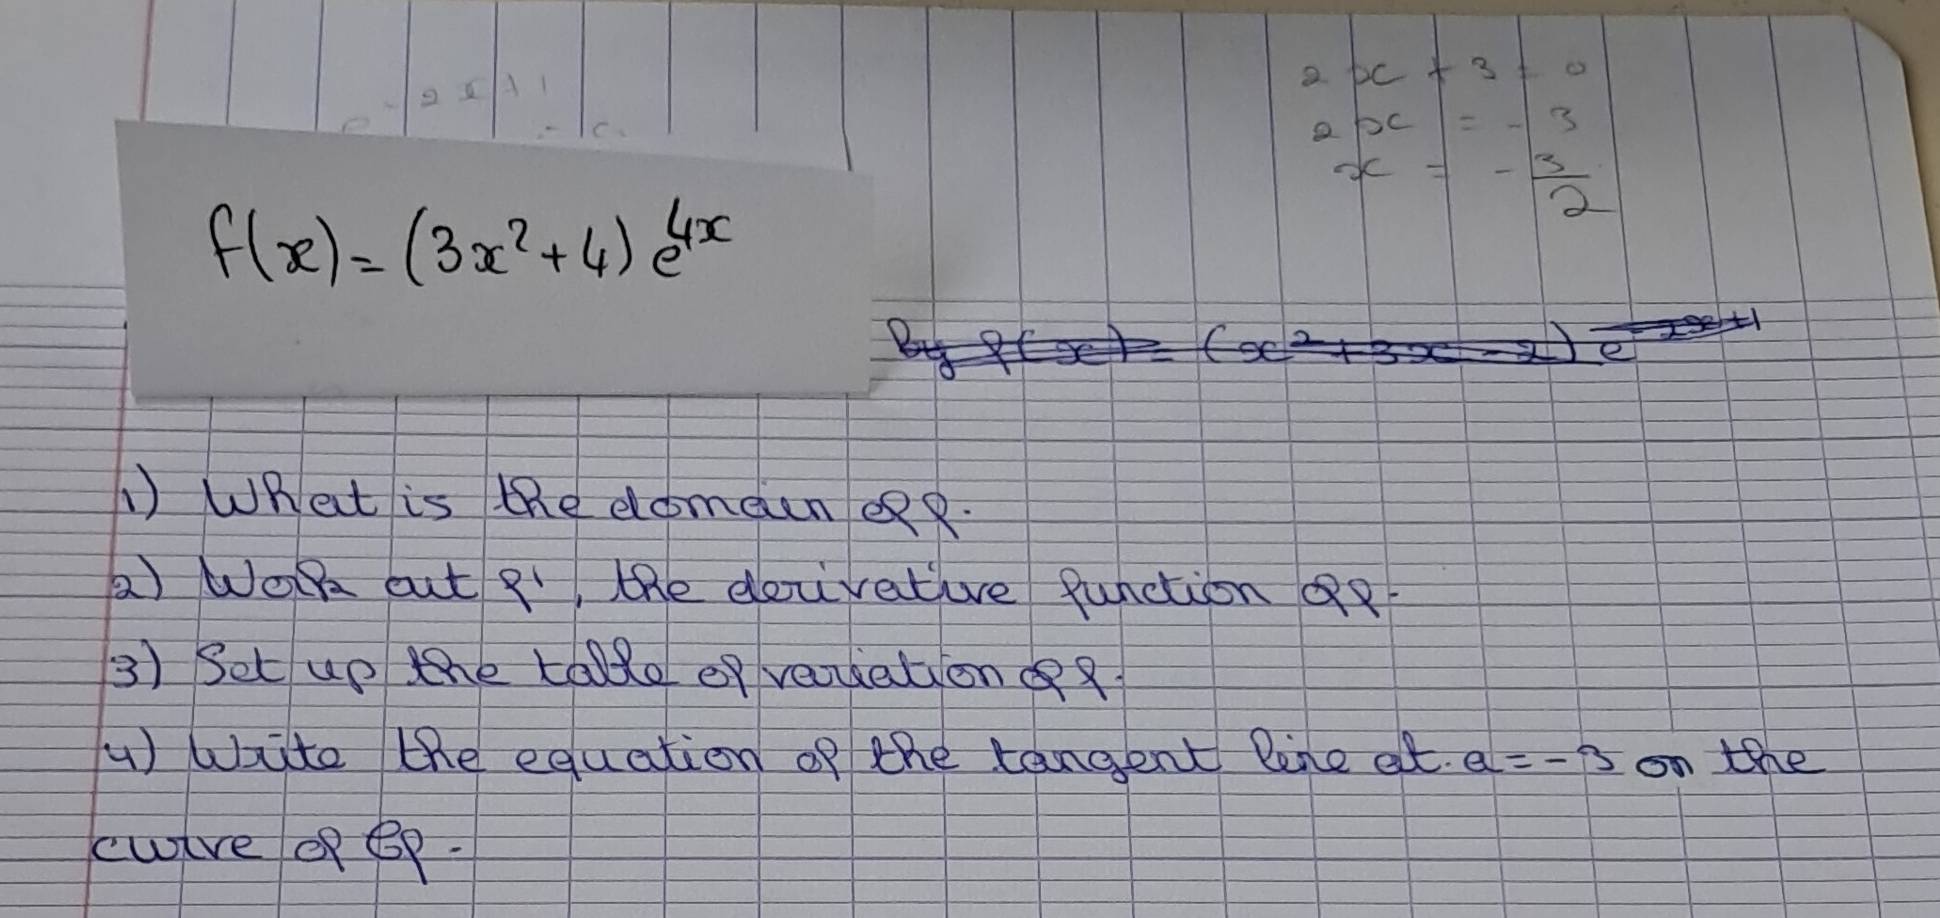 2x + 3 = 0
2x = - 3
x = - 3/2
f(x) = (3x² + 4) e^4x
By f(x) = (x² + 3x - 2) e^-2x+1
1) What is the domain of f.
2) Work out f', the derivative function of f.
3) Set up the table of variation of f.
4) Write the equation of the tangent line at a = -3 on the
curve of Cf.